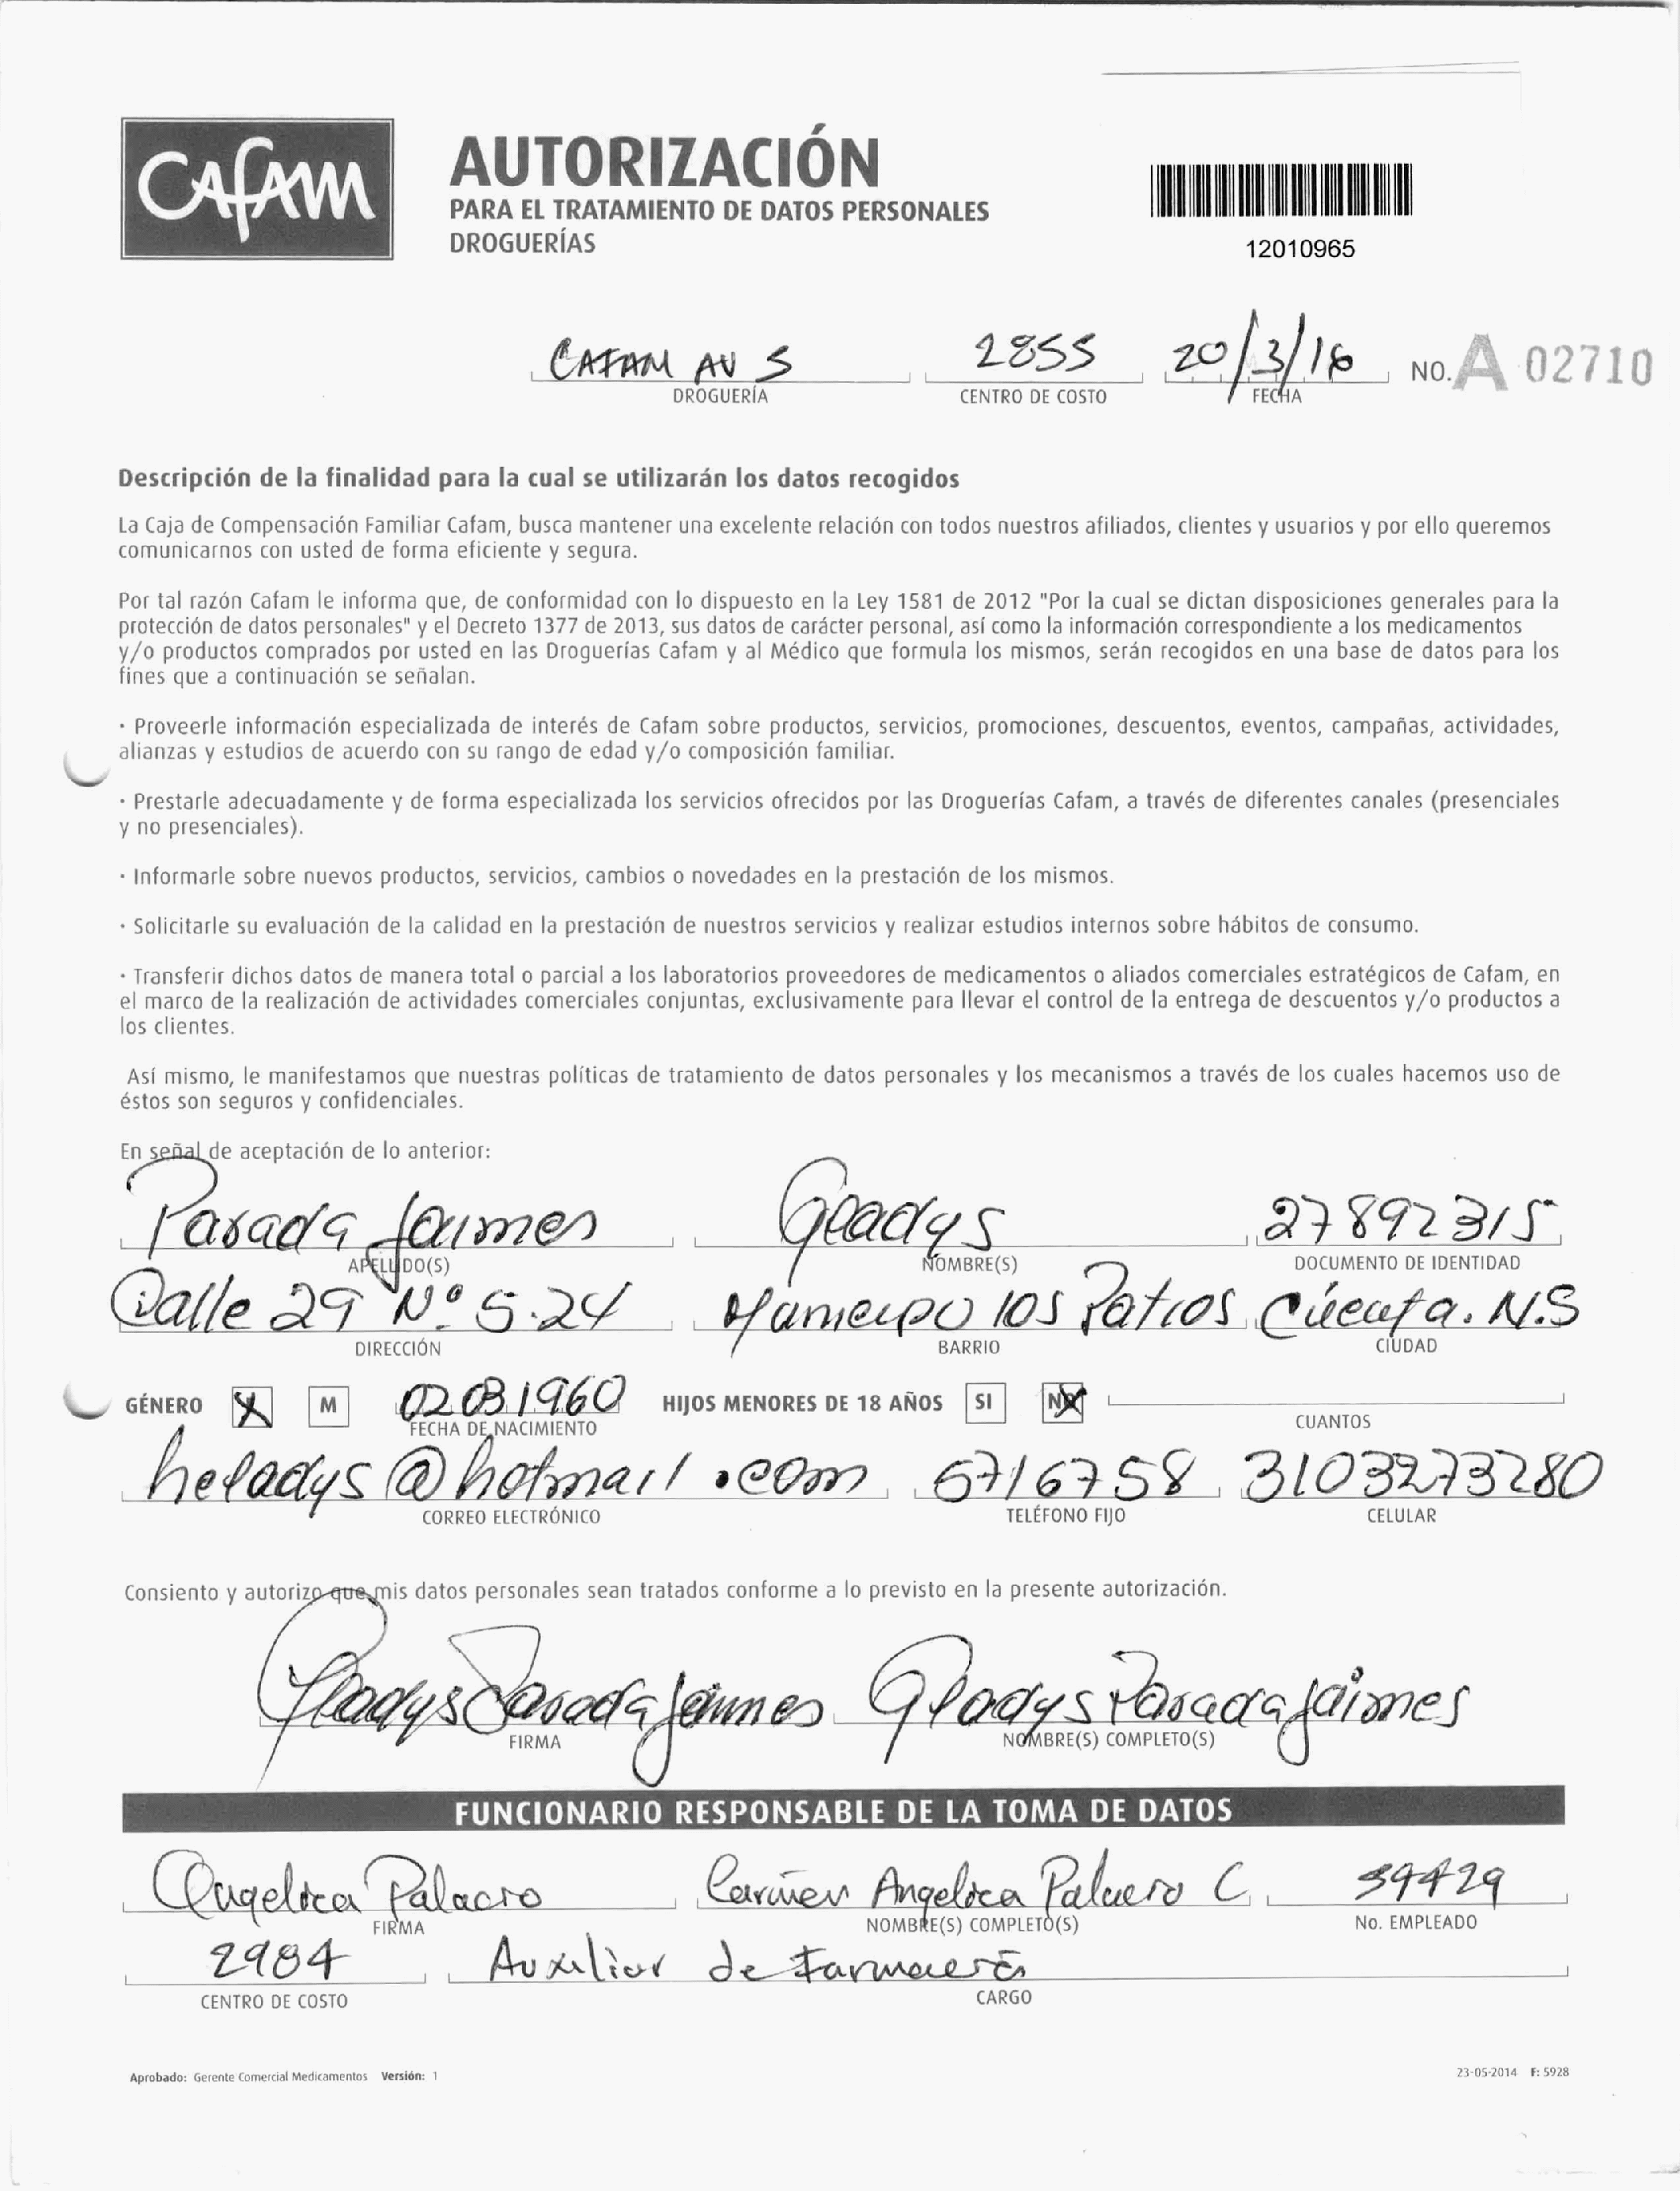 CAFAM
AUTORIZACIÓN
PARA EL TRATAMIENTO DE DATOS PERSONALES
DROGUERÍAS
12010965
CAFAM AV 5 2855 20/3/16 NO. A 02710
DROGUERÍA CENTRO DE COSTO FECHA
Descripción de la finalidad para la cual se utilizarán los datos recogidos
La Caja de Compensación Familiar Cafam, busca mantener una excelente relación con todos nuestros afiliados, clientes y usuarios y por ello queremos
comunicarnos con usted de forma eficiente y segura.
Por tal razón Cafam le informa que, de conformidad con lo dispuesto en la Ley 1581 de 2012 "Por la cual se dictan disposiciones generales para la
protección de datos personales" y el Decreto 1377 de 2013, sus datos de carácter personal, así como la información correspondiente a los medicamentos
y/o productos comprados por usted en las Droguerías Cafam y al Médico que formula los mismos, serán recogidos en una base de datos para los
fines que a continuación se señalan.
· Proveerle información especializada de interés de Cafam sobre productos, servicios, promociones, descuentos, eventos, campañas, actividades,
alianzas y estudios de acuerdo con su rango de edad y/o composición familiar.
· Prestarle adecuadamente y de forma especializada los servicios ofrecidos por las Droguerías Cafam, a través de diferentes canales (presenciales
y no presenciales).
· Informarle sobre nuevos productos, servicios, cambios o novedades en la prestación de los mismos.
· Solicitarle su evaluación de la calidad en la prestación de nuestros servicios y realizar estudios internos sobre hábitos de consumo.
· Transferir dichos datos de manera total o parcial a los laboratorios proveedores de medicamentos o aliados comerciales estratégicos de Cafam, en
el marco de la realización de actividades comerciales conjuntas, exclusivamente para llevar el control de la entrega de descuentos y/o productos a
los clientes.
Así mismo, le manifestamos que nuestras políticas de tratamiento de datos personales y los mecanismos a través de los cuales hacemos uso de
éstos son seguros y confidenciales.
En señal de aceptación de lo anterior:
Parada Jaimes Gladys 27892315
APELLIDO(S) NOMBRE(S) DOCUMENTO DE IDENTIDAD
Calle 29 Nº 5-24 los Patios Cúcuta. N.S
DIRECCIÓN BARRIO CIUDAD
GÉNERO X M 02031960 HIJOS MENORES DE 18 AÑOS SI NO X
FECHA DE NACIMIENTO CUANTOS
heladys@hotmail.com 5716758 3103273280
CORREO ELECTRÓNICO TELÉFONO FIJO CELULAR
Consiento y autorizo que mis datos personales sean tratados conforme a lo previsto en la presente autorización.
Gladys Parada Jaimes Gladys Parada Jaimes
FIRMA NOMBRE(S) COMPLETO(S)
FUNCIONARIO RESPONSABLE DE LA TOMA DE DATOS
Angelica Palacio Carmen Angelica Palacio C 39429
FIRMA NOMBRE(S) COMPLETO(S) No. EMPLEADO
2984 Auxiliar de Farmacia
CENTRO DE COSTO CARGO
Aprobado: Gerente Comercial Medicamentos Versión: 1 23-05-2014 F: 5928